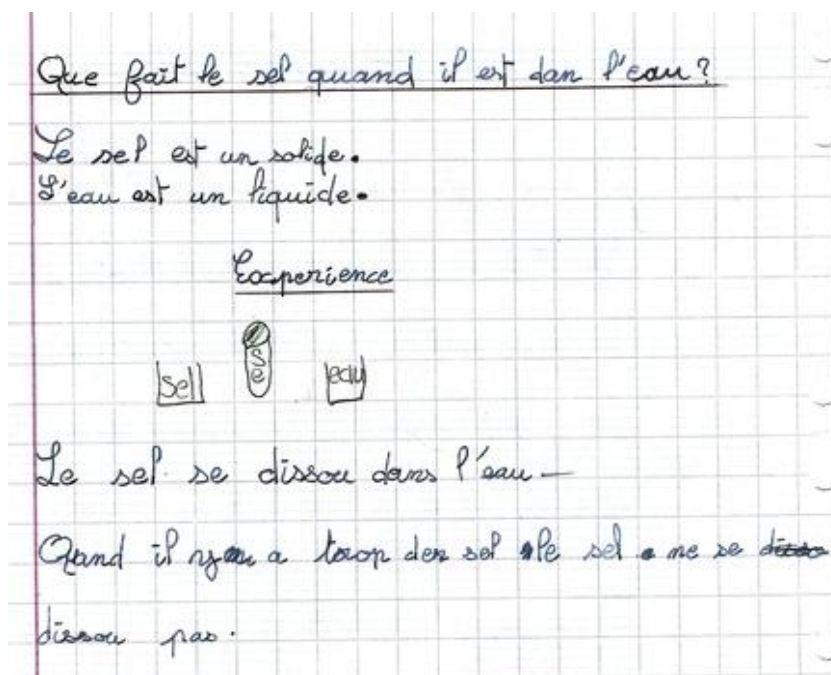 Que fait le sel quand il est dan l'eau?
Le sel est un solide.
L'eau est un liquide.
Experience
sel
se
eau
Le sel se dissou dans l'eau
Quand il y a trop de sel le sel ne se
dissou pas.